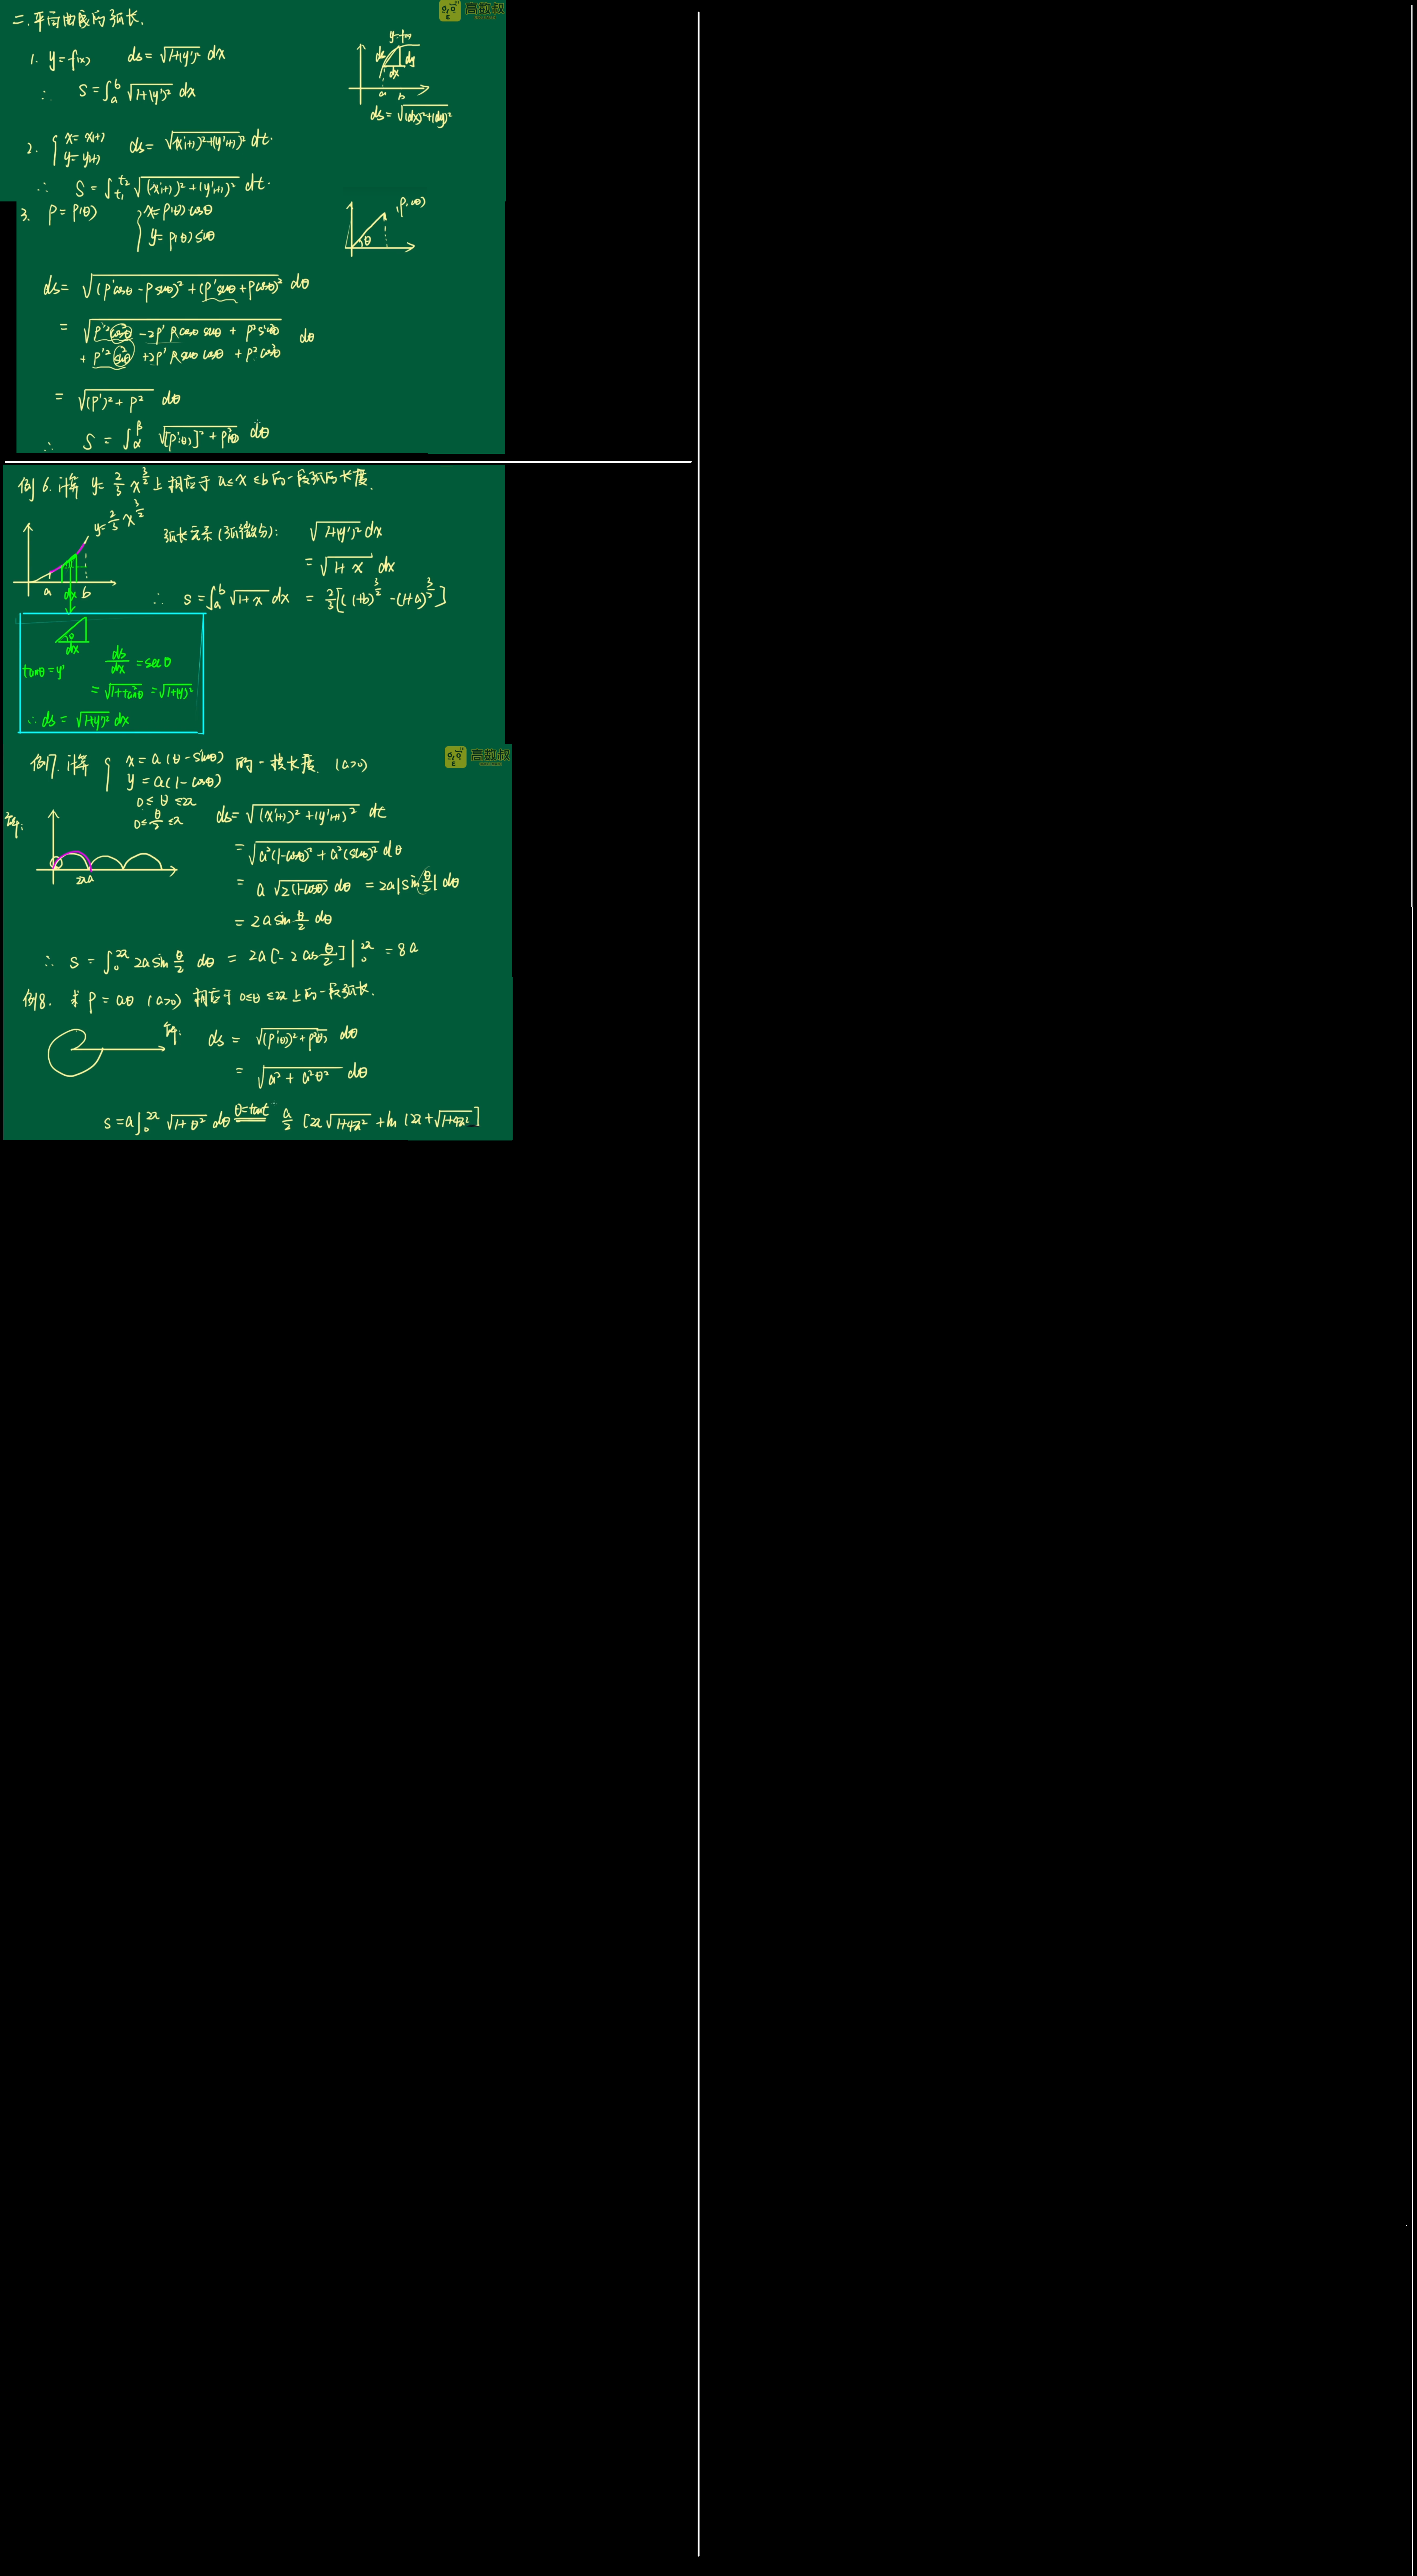 二.平面曲线的弧长.
高数叔
1. y=f(x) ds=√(1+(y')²) dx
∴ S=∫_a^b √(1+(y')²) dx
y=f(x)
ds dy
dx
a b
ds=√((dx)²+(dy)²)
2. { x=x(t) y=y(t) ds=√((x'(t))²+(y'(t))²) dt.
∴ S=∫_{t₁}^{t₂} √((x'(t))²+(y'(t))²) dt.
3. ρ=ρ(θ) { x=ρ(θ)cosθ y=ρ(θ)sinθ
(ρ,θ)
θ
ds=√((ρ'cosθ-ρsinθ)²+(ρ'sinθ+ρcosθ)²) dθ
=√(ρ'²cos²θ-2ρ'ρcosθsinθ+ρ²sin²θ
+ρ'²sin²θ+2ρ'ρsinθcosθ+ρ²cos²θ) dθ
=√((ρ')²+ρ²) dθ
∴ S=∫_α^β √([ρ'(θ)]²+ρ²(θ)) dθ
例6.计算 y=2/3 x^(3/2) 上相应于 a≤x≤b 的一段弧的长度.
y=2/3 x^(3/2)
a dx b
弧长元素(弧微分): √(1+(y')²) dx
=√(1+x) dx
∴ s=∫_a^b √(1+x) dx = 2/3[(1+b)^(3/2)-(1+a)^(3/2)]
θ
dx
tanθ=y' ds/dx=secθ
=√(1+tan²θ)=√(1+(y')²)
∴ds=√(1+(y')²) dx
高数叔
例7.计算 { x=a(θ-sinθ) y=a(1-cosθ) 的一拱长度. (a>0)
0≤θ≤2π
0≤θ/2≤π
解:
2πa
ds=√((x'(t))²+(y'(t))²) dt
=√(a²(1-cosθ)²+a²(sinθ)²) dθ
=a√(2(1-cosθ)) dθ =2a|sin θ/2| dθ
=2a sin θ/2 dθ
∴ s=∫_0^{2π} 2a sin θ/2 dθ = 2a[-2cos θ/2]|_0^{2π} =8a
例8. 求 ρ=aθ (a>0) 相应于 0≤θ≤2π 上的一段弧长.
解: ds=√((ρ'(θ))²+ρ²(θ)) dθ
=√(a²+a²θ²) dθ
s=a∫_0^{2π} √(1+θ²) dθ θ=tant = a/2 [2π√(1+4π²)+ln(2π+√(1+4π²)]